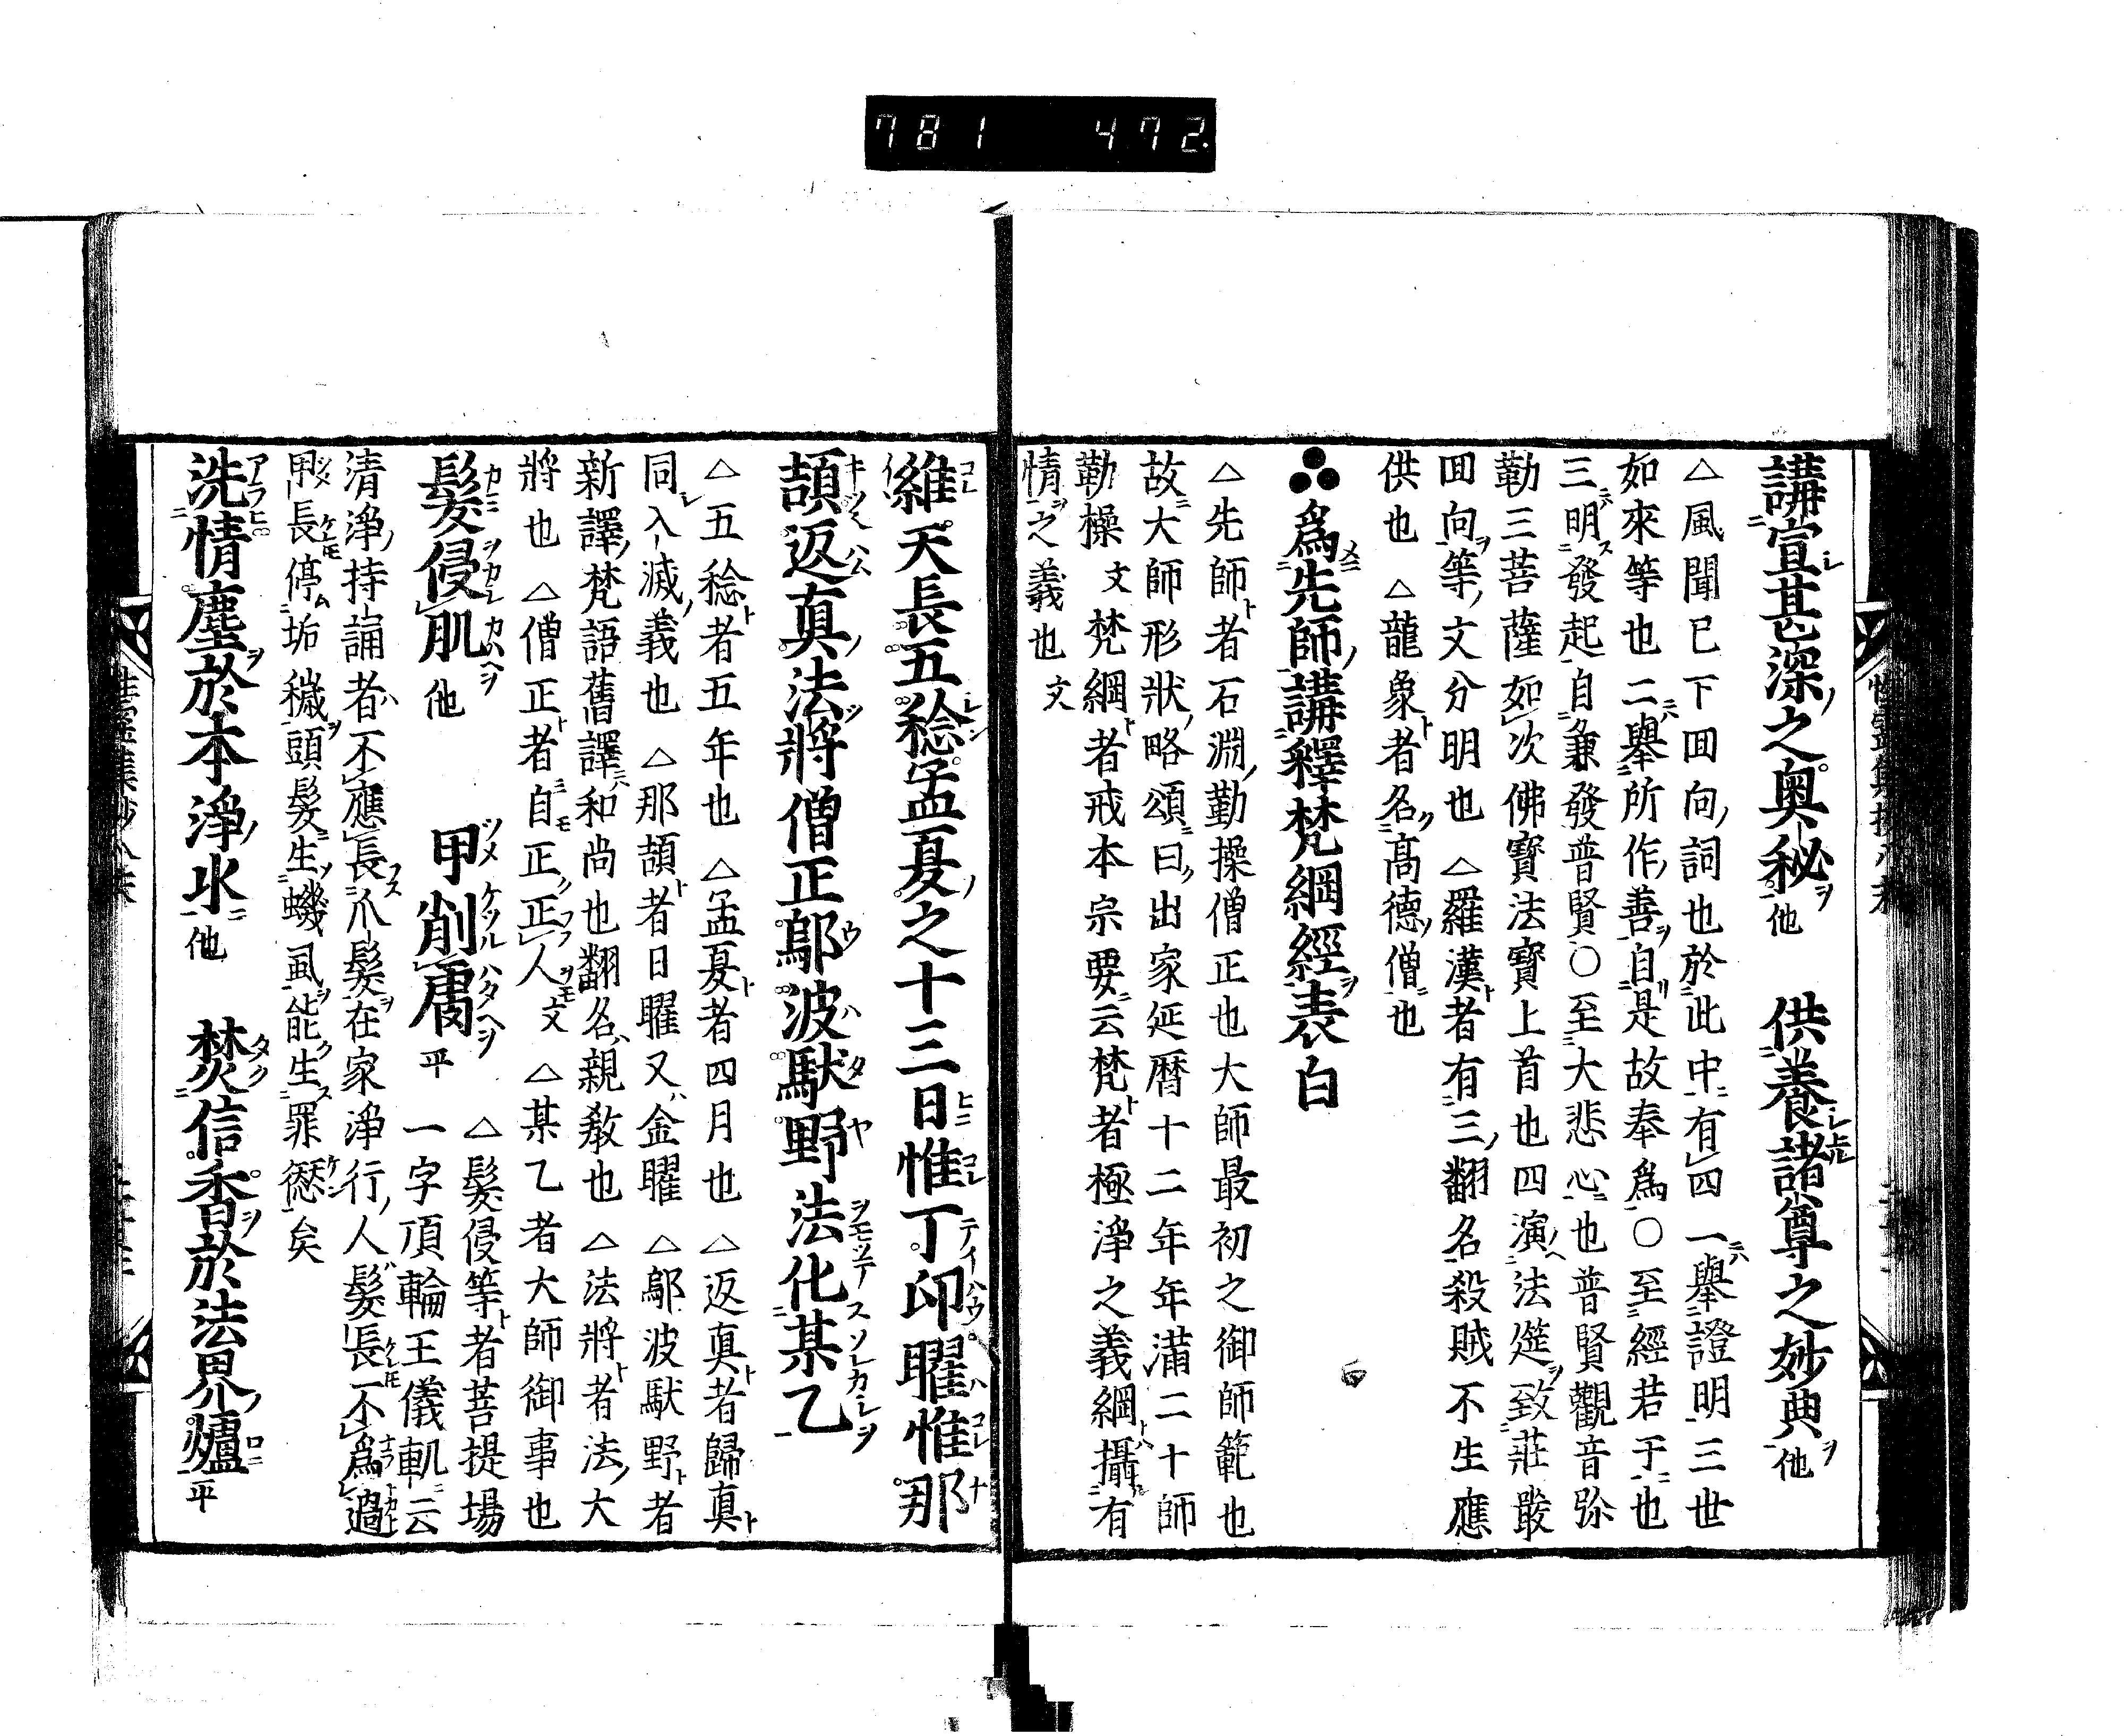 781 472.
講宣甚深之奥秘他 供養諸尊之妙典他
△風聞已下囬向詞也於此中有四一舉證明三世
如來等也二舉所作善自是故奉爲○至經若于也
三明發起自兼發普賢○至大悲心也普賢觀音弥
勒三菩薩如次佛寶法寶上首也四演法筵致莊嚴
囬向等文分明也 △羅漢者有三翻名殺賊不生應
供也 △龍象者名髙德僧也
爲先師講釋梵網經表白
△先師者石淵勤操僧正也大師最初之御師範也
故大師形狀略頌曰出家延暦十二年年滿二十師
勤操文梵網者戒本宗要云梵者極淨之義網攝有
情之義也文
維天長五稔孟夏之十三日惟丁卯曜惟那
頡返真法將僧正鄔波駄野法化某乙
△五稔者五年也 △孟夏者四月也 △返真者歸真
同入滅義也 △那頡者日曜又金曜 △鄔波駄野者
新譯梵語舊譯和尚也翻名親教也 △法將者法大
將也 △僧正者自正正人文 △某乙者大師御事也
髮侵肌他 甲削膚平 △髮侵等者菩提場
一字頂輪王儀軌云
清淨持誦者不應長爪髮在家淨行人髮長不爲過
甲長停垢穢頭髮生蟣虱能生罪愆矣
洗情塵於本淨水他 焚信香於法界爐平